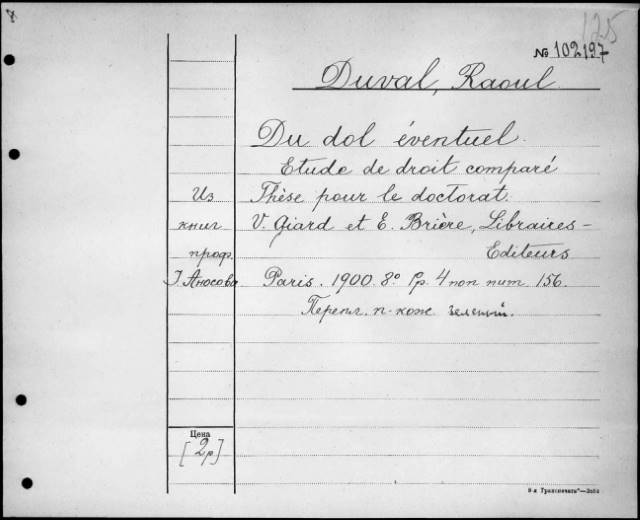 125
№ 102197
Duval, Raoul
Du dol éventuel
Etude de droit comparé
Из Thèse pour le doctorat.
книг V. Giard et E. Brière, Libraires-
проф. Editeurs
Аносова Paris. 1900. 8° 4 non num 156.
Перепл. п. кож. зеленый.
Цена
[2р]